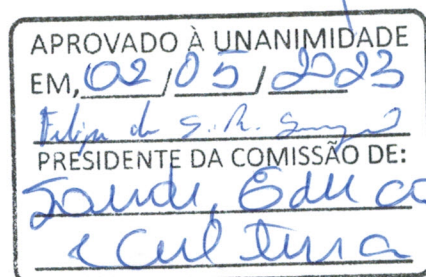 APROVADO À UNANIMIDADE
EM, 02 / 05 / 2023
Felipe de S. R.
PRESIDENTE DA COMISSÃO DE:
Saude, Educa
e Cultura